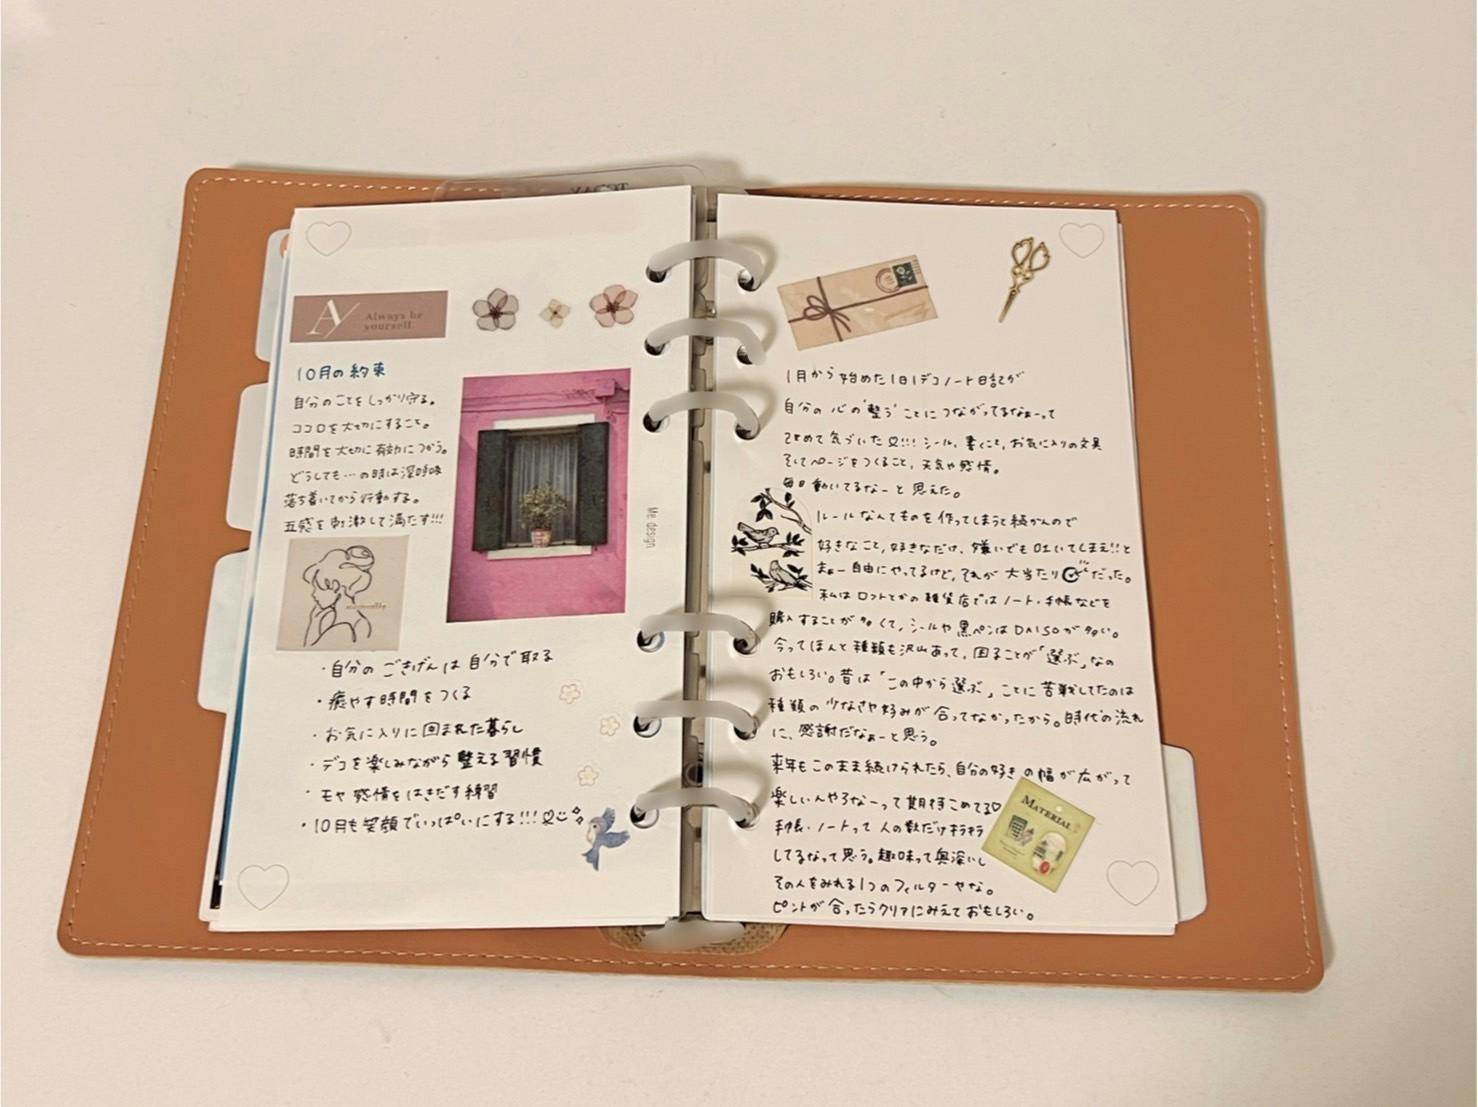 AY
Always be
yourself.
10月の約束
自分のことをしっかり守る。
ココロを大切にすること。
時間を大切に有効につかう。
どうしても…の時は深呼吸
落ち着いてから行動する。
五感を刺激して満たす!!!
Me. design
・自分のごきげんは自分で取る
・癒やす時間をつくる
・お気に入りに囲まれた暮らし
・デコを楽しみながら整える習慣
・モヤ感情をはきだす練習
・10月も笑顔でいっぱいにする!!!
1月から始めた1日1デコノート日記が
自分の心の"整う"ことにつながってるなぁーって
改めて気づいた♡!!! シール、書くこと、お気に入りの文具
そしてページをつくること、天気や感情。
毎日動いてるなーと思えた。
ルールなんてものを作ってしまうと続かんので
好きなこと,好きなだけ、嫌いでも吐いてしまえ!!と
まぁー自由にやってるけど,それが大当たりだった。
私はロフトとかの雑貨店ではノート・手帳などを
購入することが多くて,シールや黒ペンはDAISOが多い。
今ってほんと種類も沢山あって、困ることが「選ぶ」なの
おもしろい。昔は「この中から選ぶ」ことに苦戦してたのは
種類の少なさや好みが合ってなかったから。時代の流れ
に、感謝だなぁーと思う。
来年もこのまま続けられたら、自分の好きの幅が広がって
楽しいんやろなーって期待こめてる♡
手帳・ノートって人の数だけキラキラ
してるなって思う。趣味って奥深いし
その人をみれる1つのフィルターやな。
ピントが合ったらクリアにみえておもしろい。
MATERIAL